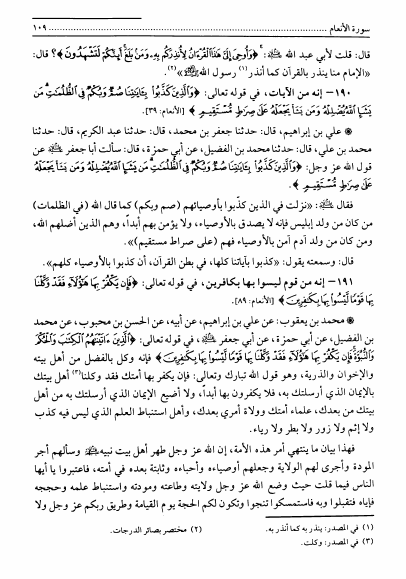 سورة الأنعام ... ١٠٩
قال: قلت لأبي عبد الله ﷺ: ﴿وَأُوحِيَ إِلَيَّ هَٰذَا الْقُرْآنُ لِأُنذِرَكُم بِهِ وَمَن بَلَغَ أَئِنَّكُمْ لَتَشْهَدُونَ﴾؟ قال:
«الإمام منا ينذر بالقرآن كما أنذر(١) رسول الله ﷺ»(٢).
١٩٠ - إنه من الآيات، في قوله تعالى: ﴿وَالَّذِينَ كَذَّبُوا بِآيَاتِنَا صُمٌّ وَبُكْمٌ فِي الظُّلُمَاتِ مَن
يَشَإِ اللَّهُ يُضْلِلْهُ وَمَن يَشَأْ يَجْعَلْهُ عَلَىٰ صِرَاطٍ مُّسْتَقِيمٍ﴾ [الأنعام: ٣٩].
● علي بن إبراهيم، قال: حدثنا جعفر بن محمد، قال: حدثنا عبد الكريم، قال: حدثنا
محمد بن علي، قال: حدثنا محمد بن الفضيل، عن أبي حمزة، قال: سألت أبا جعفر ﷺ عن
قول الله عز وجل: ﴿وَالَّذِينَ كَذَّبُوا بِآيَاتِنَا صُمٌّ وَبُكْمٌ فِي الظُّلُمَاتِ مَن يَشَإِ اللَّهُ يُضْلِلْهُ وَمَن يَشَأْ يَجْعَلْهُ
عَلَىٰ صِرَاطٍ مُّسْتَقِيمٍ﴾.
فقال ﷺ: «نزلت في الذين كذبوا بأوصيائهم (صم وبكم) كما قال الله (في الظلمات)
من كان من ولد إبليس فإنه لا يصدق بالأوصياء، ولا يؤمن بهم أبداً، وهم الذين أضلهم الله،
ومن كان من ولد آدم آمن بالأوصياء فهم (على صراط مستقيم)».
قال: وسمعته يقول: «كذبوا بآياتنا كلها، في بطن القرآن، أن كذبوا بالأوصياء كلهم».
١٩١ - إنه من قوم ليسوا بها بكافرين، في قوله تعالى: ﴿فَإِن يَكْفُرْ بِهَا هَٰؤُلَاءِ فَقَدْ وَكَّلْنَا
بِهَا قَوْمًا لَّيْسُوا بِهَا بِكَافِرِينَ﴾ [الأنعام: ٨٩].
● محمد بن يعقوب: عن علي بن إبراهيم، عن أبيه، عن الحسن بن محبوب، عن محمد
بن الفضيل، عن أبي حمزة، عن أبي جعفر ﷺ: ﴿الَّذِينَ آتَيْنَاهُمُ الْكِتَابَ وَالْحُكْمَ
وَالنُّبُوَّةَ فَإِن يَكْفُرْ بِهَا هَٰؤُلَاءِ فَقَدْ وَكَّلْنَا بِهَا قَوْمًا لَّيْسُوا بِهَا بِكَافِرِينَ﴾ فإنه وكل بالفضل من أهل بيته
والإخوان والذرية، وهو قول الله تبارك وتعالى: فإن يكفر بها أمتك فقد وكلنا(٣) أهل بيتك
بالإيمان الذي أرسلتك به، فلا يكفرون بها أبداً، ولا أضيع الإيمان الذي أرسلتك به من أهل
بيتك من بعدك، علماء أمتك وولاة أمري بعدك، وأهل استنباط العلم الذي ليس فيه كذب
ولا إثم ولا زور ولا بطر ولا رياء.
فهذا بيان ما ينتهي أمر هذه الأمة، إن الله عز وجل طهر أهل بيت نبيه ﷺ وسألهم أجر
المودة وأجرى لهم الولاية وجعلهم أوصياءه وأحباءه وثابتة بعده في أمته، فاعتبروا يا أيها
الناس فيما قلت حيث وضع الله عز وجل ولايته وطاعته ومودته واستنباط علمه وحججه
فإياه فتقبلوا وبه فاستمسكوا تنجوا وتكون لكم الحجة يوم القيامة وطريق ربكم عز وجل ولا
(١) في المصدر: ينذر به كما أنذر به. (٢) مختصر بصائر الدرجات.
(٣) في المصدر: وكلت.